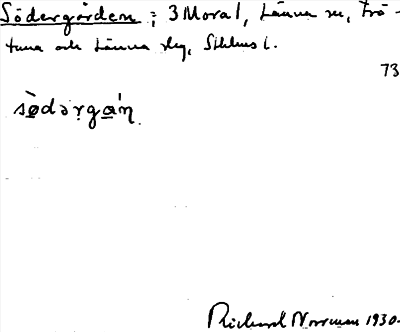 Södergården ; 3 Mora 1, Länna sn, Trö-
tuna och Länna slg, Sthlms l.
73
sø̀dərgáṇ
Richard Norrman 1930.